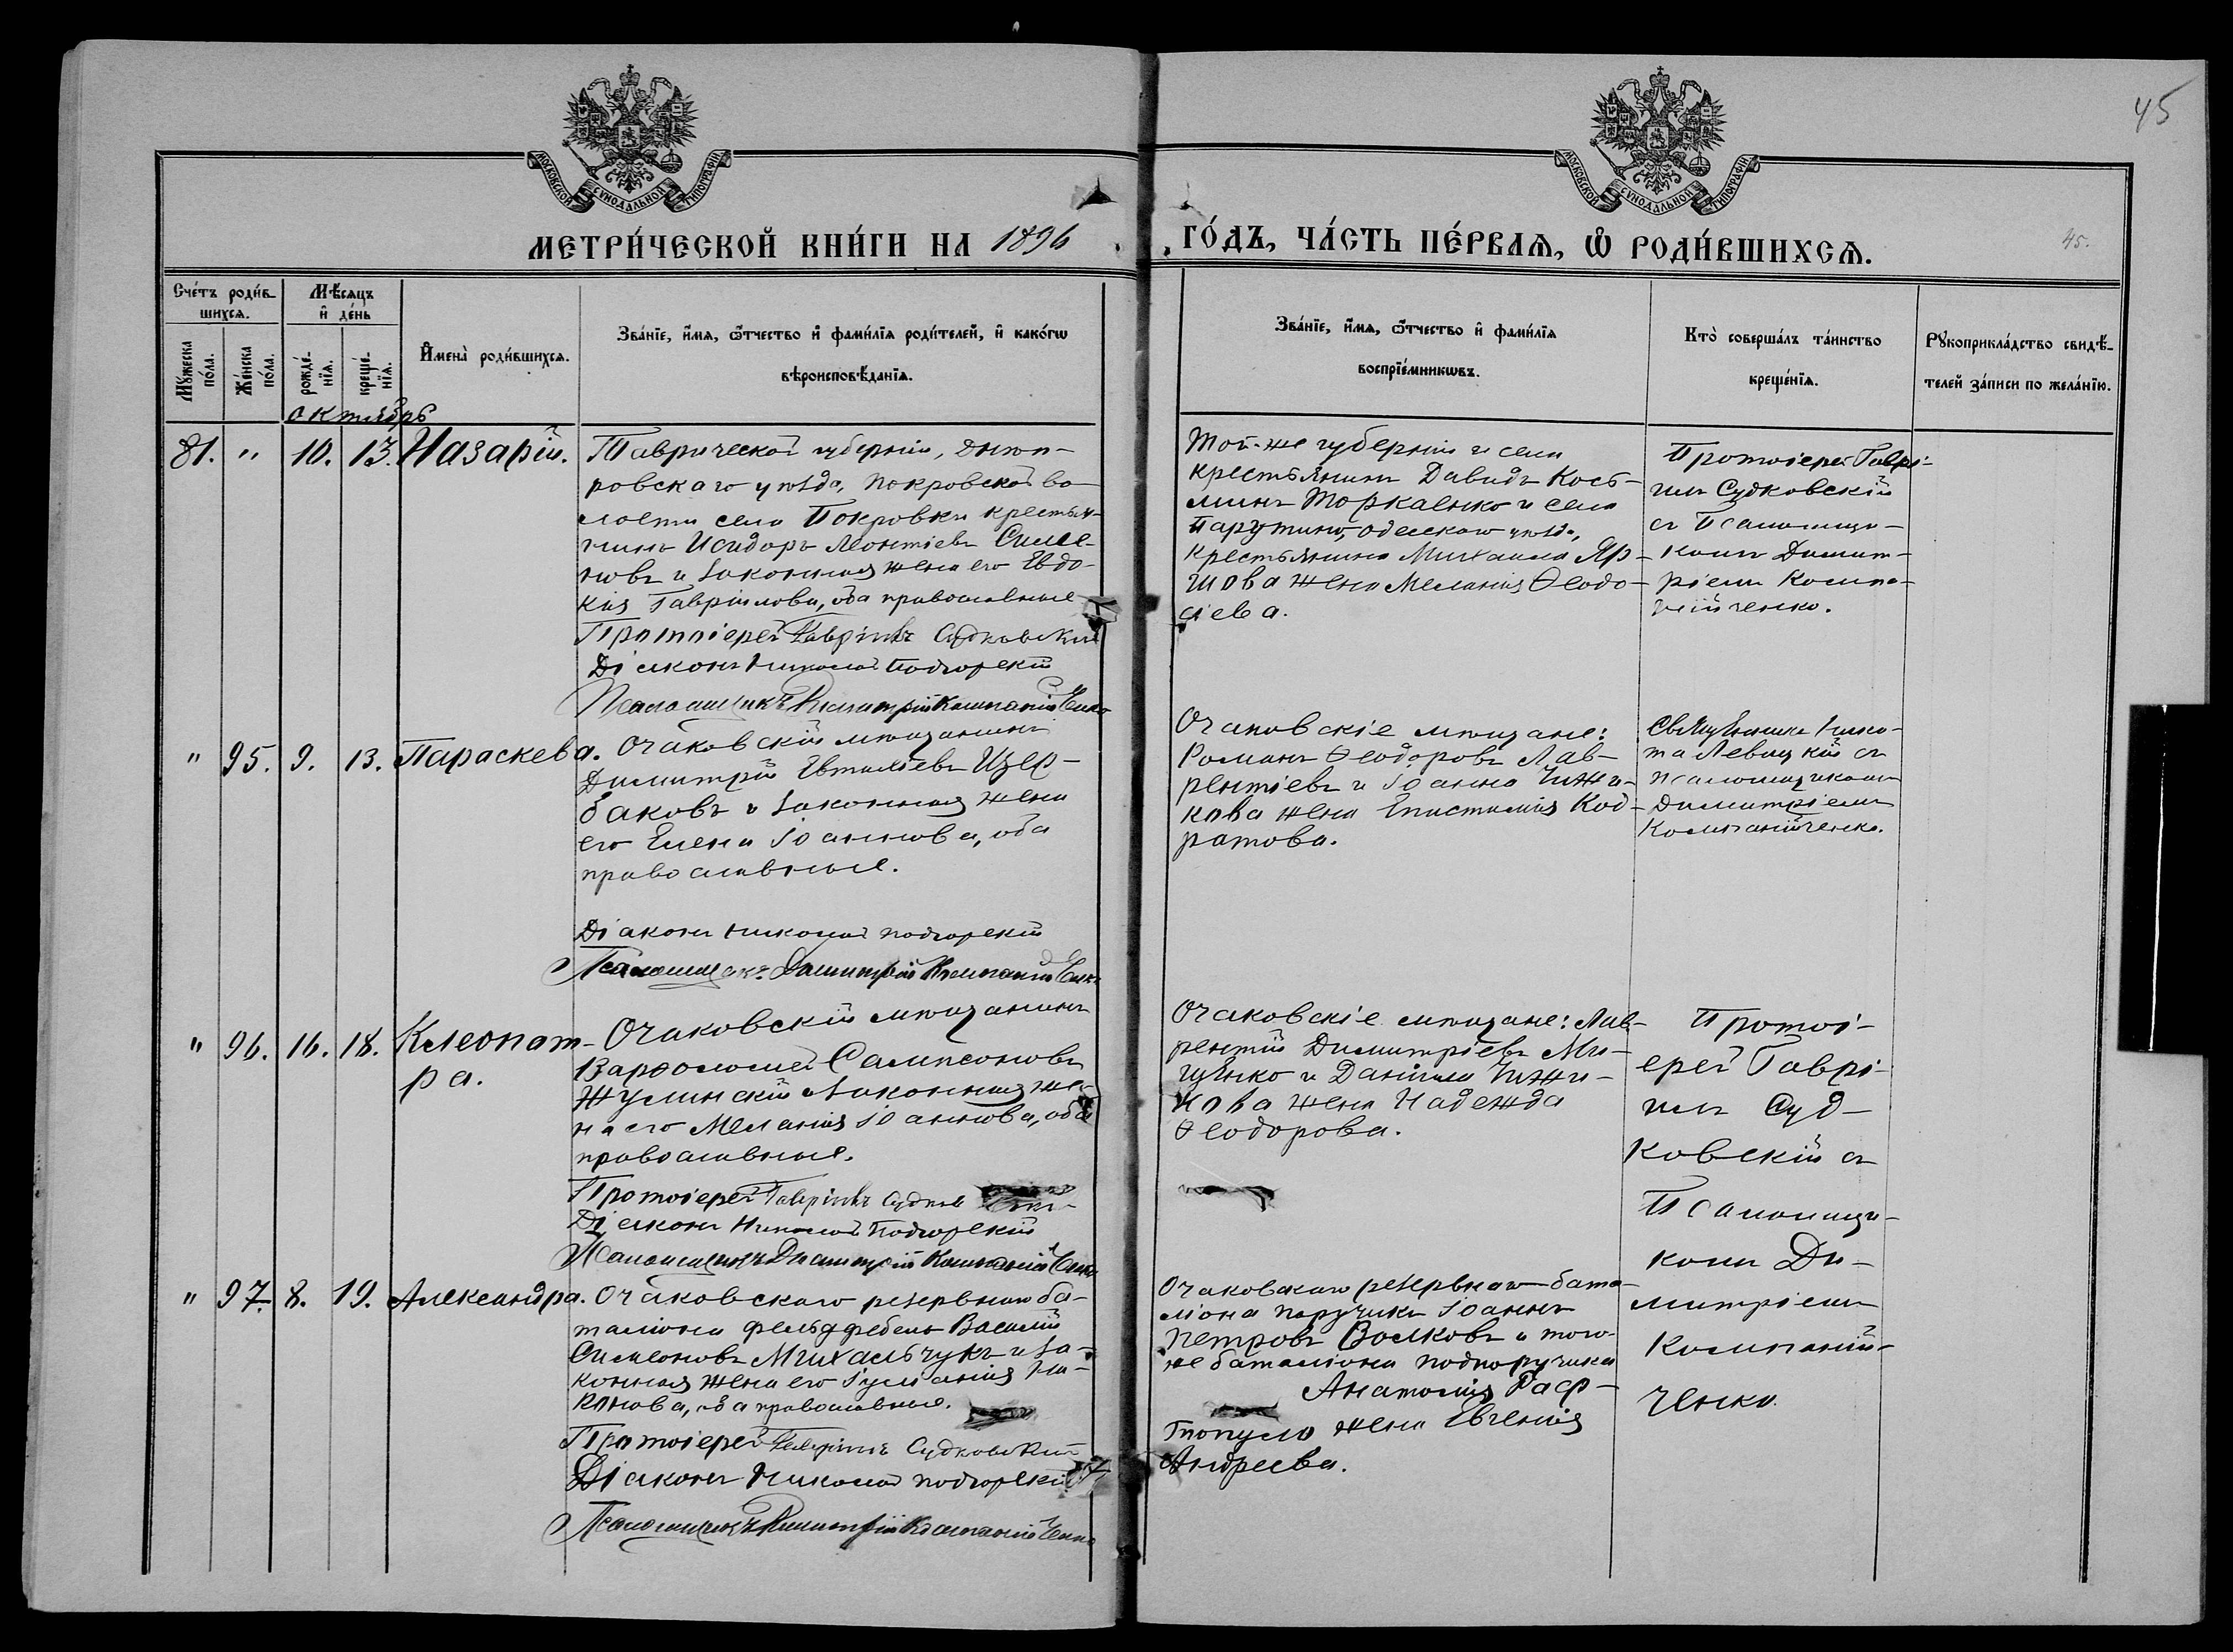 45
МОСКОВСКОЙ СѴНОДАЛЬНОЙ ТИПОГРАФІИ
МОСКОВСКОЙ СѴНОДАЛЬНОЙ ТИПОГРАФІИ
МЕТРИ́ЧЕСКОЙ КНИ́ГИ НА 1896
ГО́ДЪ, ЧА́СТЬ ПЕ́РВАѦ, Ѡ҆ РОДИ́ВШИХСѦ.
45.
Сче́тъ роди́в-
шихсѧ.
Мѣ́сѧцъ
и҆ де́нь
Мꙋ́жеска
по́ла.
Же́нска
по́ла.
рожде́-
нїѧ.
креще́-
нїѧ.
И҆мена̀ роди́вшихсѧ.
Зва́нїе, и҆́мѧ, ѻ҆́тчество и҆ фами́лїѧ роди́телей, и҆ како́гѡ
вѣроисповѣ́данїѧ.
Зва́нїе, и҆́мѧ, ѻ҆́тчество и҆ фами́лїѧ
воспрїе́мникѡвъ.
Кто̀ соверша́лъ та́инство
креще́нїѧ.
Рꙋкоприкла́дство свидѣ́-
телей за́писи по жела́нїю.
октябрь
81. " 10. 13. Назарій.
Таврической губерніи, Днѣп-
ровскаго уѣзда, Покровской во-
лости села Покровки крестья-
нинъ Исидоръ Леонтіевъ Симе-
новъ и законная жена его Евдо-
кія Гавріилова, оба православные
Протоіерей Гавріилъ Судковскій
Діаконъ Николай Подгорскій
Псаломщикъ Димитрій Компанійченко
Той-же губерніи и села
крестьянинъ Давидъ Кось-
минъ Торкаенко и села
Парутино, одесскаго уѣзда,
крестьянина Михаила Яр-
шова жена Меланія Ѳеодо-
сіева.
Протоіерей Гаврі-
илъ Судковскій
съ Псаломщи-
комъ Димит-
ріемъ Компа-
нійченко.
" 95. 9. 13. Параскева.
Очаковскій мѣщанинъ
Димитрій Евтихіевъ Щер-
баковъ и законная жена
его Елена Іоаннова, оба
православные.
Діаконъ Николай Подгорскій
Псаломщикъ Димитрій Компанійченко
Очаковскіе мѣщане:
Романъ Ѳеодоровъ Лав-
рентіевъ и Іоанна Чижи-
кова жена Епистимія Код-
ратова.
Священникъ Ники-
та Левицкій съ
псаломщикомъ
Димитріемъ
Компанійченко.
" 96. 16. 18. Клеопат-
ра.
Очаковскій мѣщанинъ
Варѳоломей Сампсоновъ
Жулинскій законная же-
на его Меланія Іоаннова, оба
православные.
Протоіерей Гавріилъ Судков
Діаконъ Николай Подгорскій
Псаломщикъ Димитрій Компанійченко
Очаковскіе мѣщане: Лав-
рентій Димитріевъ Ми-
щенко и Даніила Чижи-
кова жена Надежда
Ѳеодорова.
Протоі-
ерей Гаврі-
илъ Суд-
ковскій съ
Псаломщи-
комъ Ди-
митріемъ
Компаній-
ченко.
" 97. 8. 19. Александра.
Очаковскаго резервнаго ба-
таліона фельдфебель Василій
Симеоновъ Михальчукъ и за-
конная жена его Іуліанія Ни-
конова, оба православные.
Протоіерей Гавріилъ Судковскій
Діаконъ Николай Подгорскій
Псаломщикъ Димитрій Компанійченко
Очаковскаго резервнаго бата-
ліона поручикъ Іоаннъ
Петровъ Волковъ и того-
же баталіона подпоручика
Анатолія Раф-
топуло жена Евгенія
Андреева.